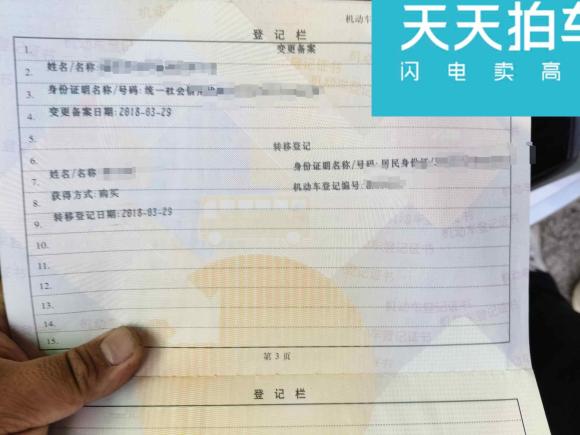 机动车
天天拍车
闪电卖高
登记栏
1. 变更备案
2. 姓名/名称
3. 身份证明名称/号码: 统一社会信用
4. 变更备案日期: 2018-03-29
5. 转移登记
6. 身份证明名称/号码: 居民身份证/
7. 姓名/名称
机动车登记编号:
8. 获得方式: 购买
9. 转移登记日期: 2018-03-29
10.
11.
12.
13.
14.
15.
第3页
登记栏